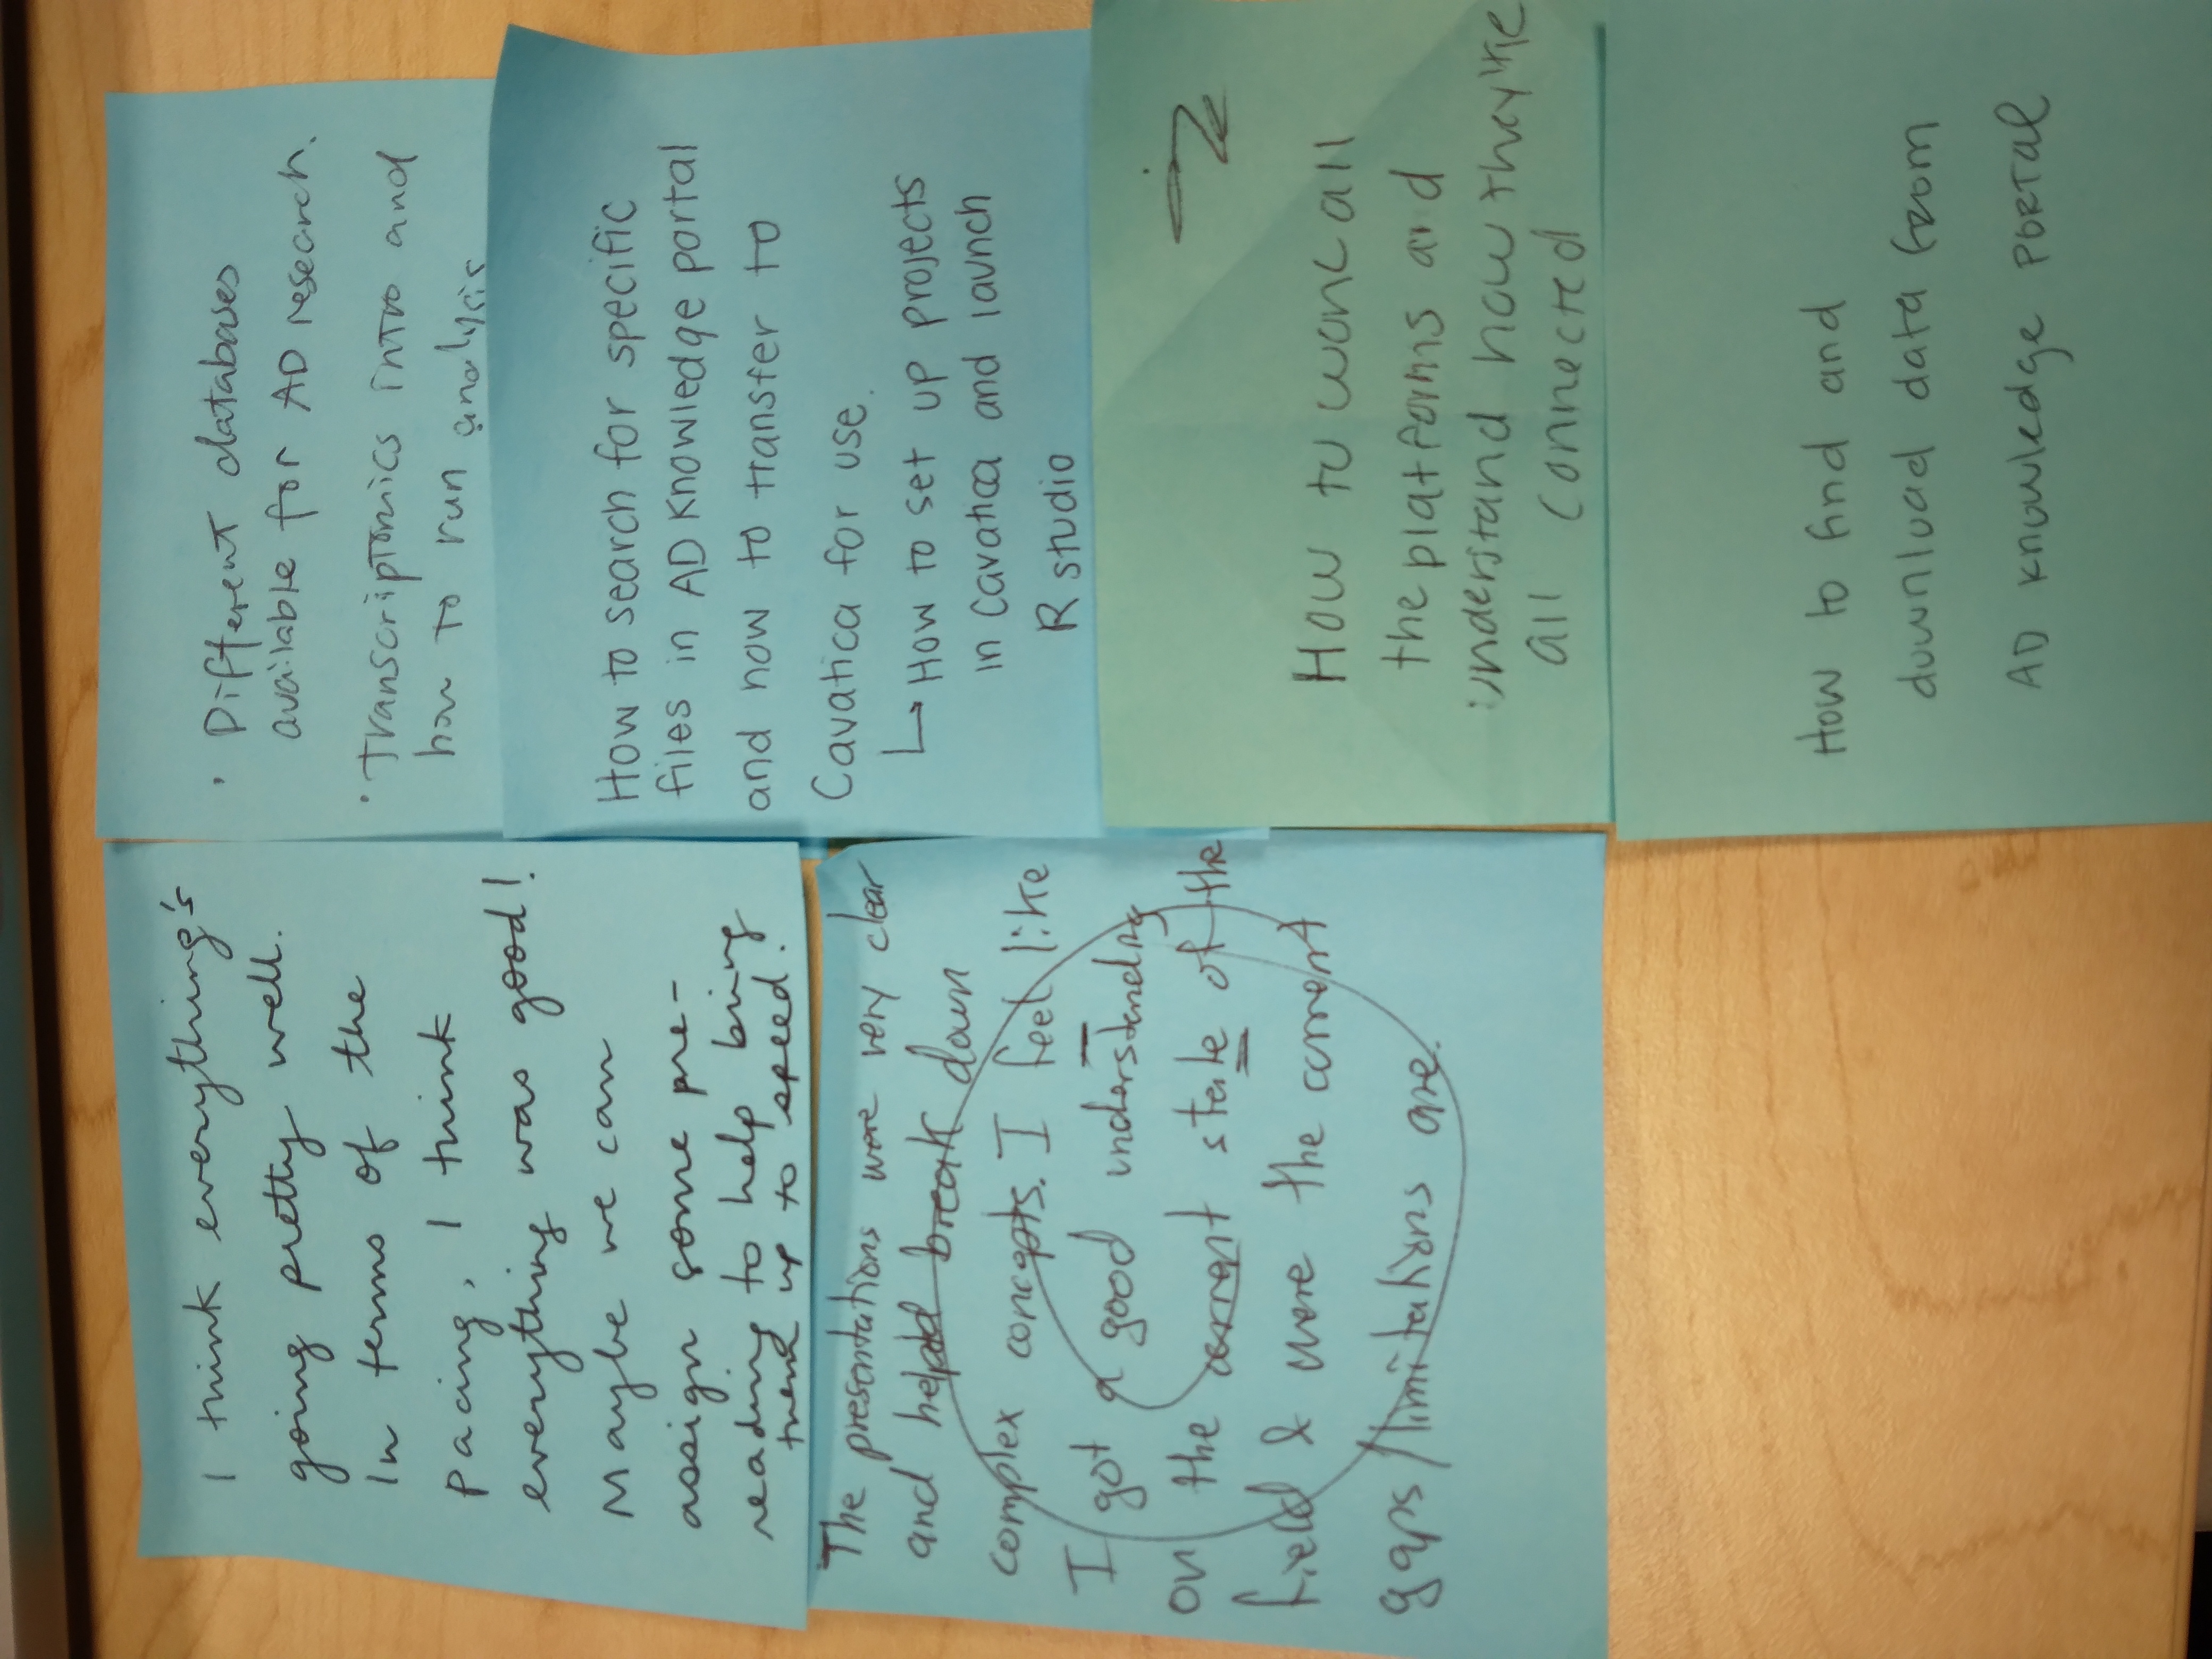 I think everything's
going pretty well.
In terms of the
pacing, I think
everything was good!
Maybe we can
assign some pre-
reading to help bring
them up to speed.
The presentations were very clear
and helped break down
complex concepts. I feel like
I got a good understanding
on the current state of the
field & were the current
gaps/limitations are.
· Different databases
available for AD research.
· Transcriptomics intro and
how to run analysis
How to search for specific
files in AD Knowledge portal
and how to transfer to
Cavatica for use.
↳ How to set up projects
in Cavatica and launch
R studio
How to work all
the platforms and
understand how they're
all connected
How to find and
download data from
AD knowledge PORTAL